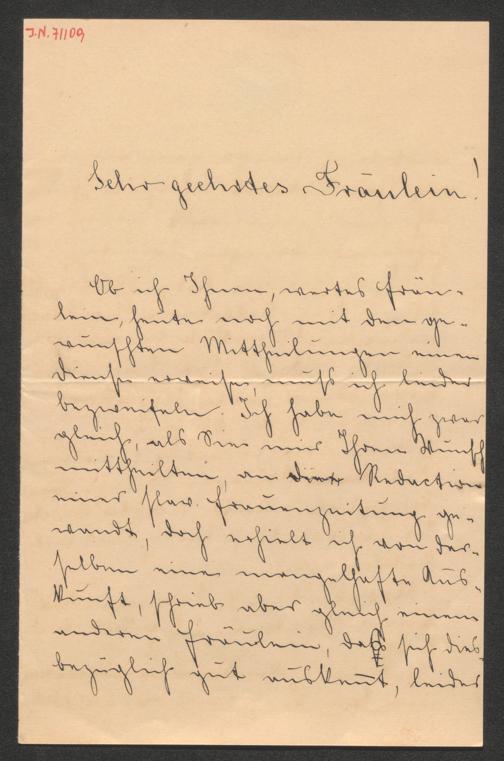 J.N. 71109
Sehr geehrtes Fräulein!
Ob ich Ihnen, wertes Fräu-
lein, heute noch mit den ge-
wünschten Mittheilungen einen
Dienst erweise, muß ich leider
bezweifeln. Ich habe mich zwar
gleich, als Sie mir Ihren Wunsch
mittheilten, an die Redaction
einer slav. Frauenzeitung ge-
wandt, doch erhielt ich von der-
selben eine mangelhafte Aus-
kunft, schrieb aber gleich einem
anderen Fräulein, das sich dies-
bezüglich gut auskennt, leider